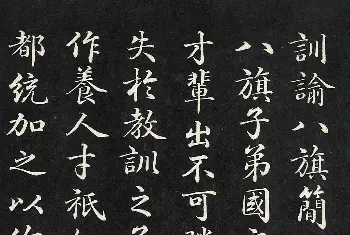 訓諭八旗簡
八旗子弟國
才輩出不可
失於教訓之
作養人才祇
都統加之以